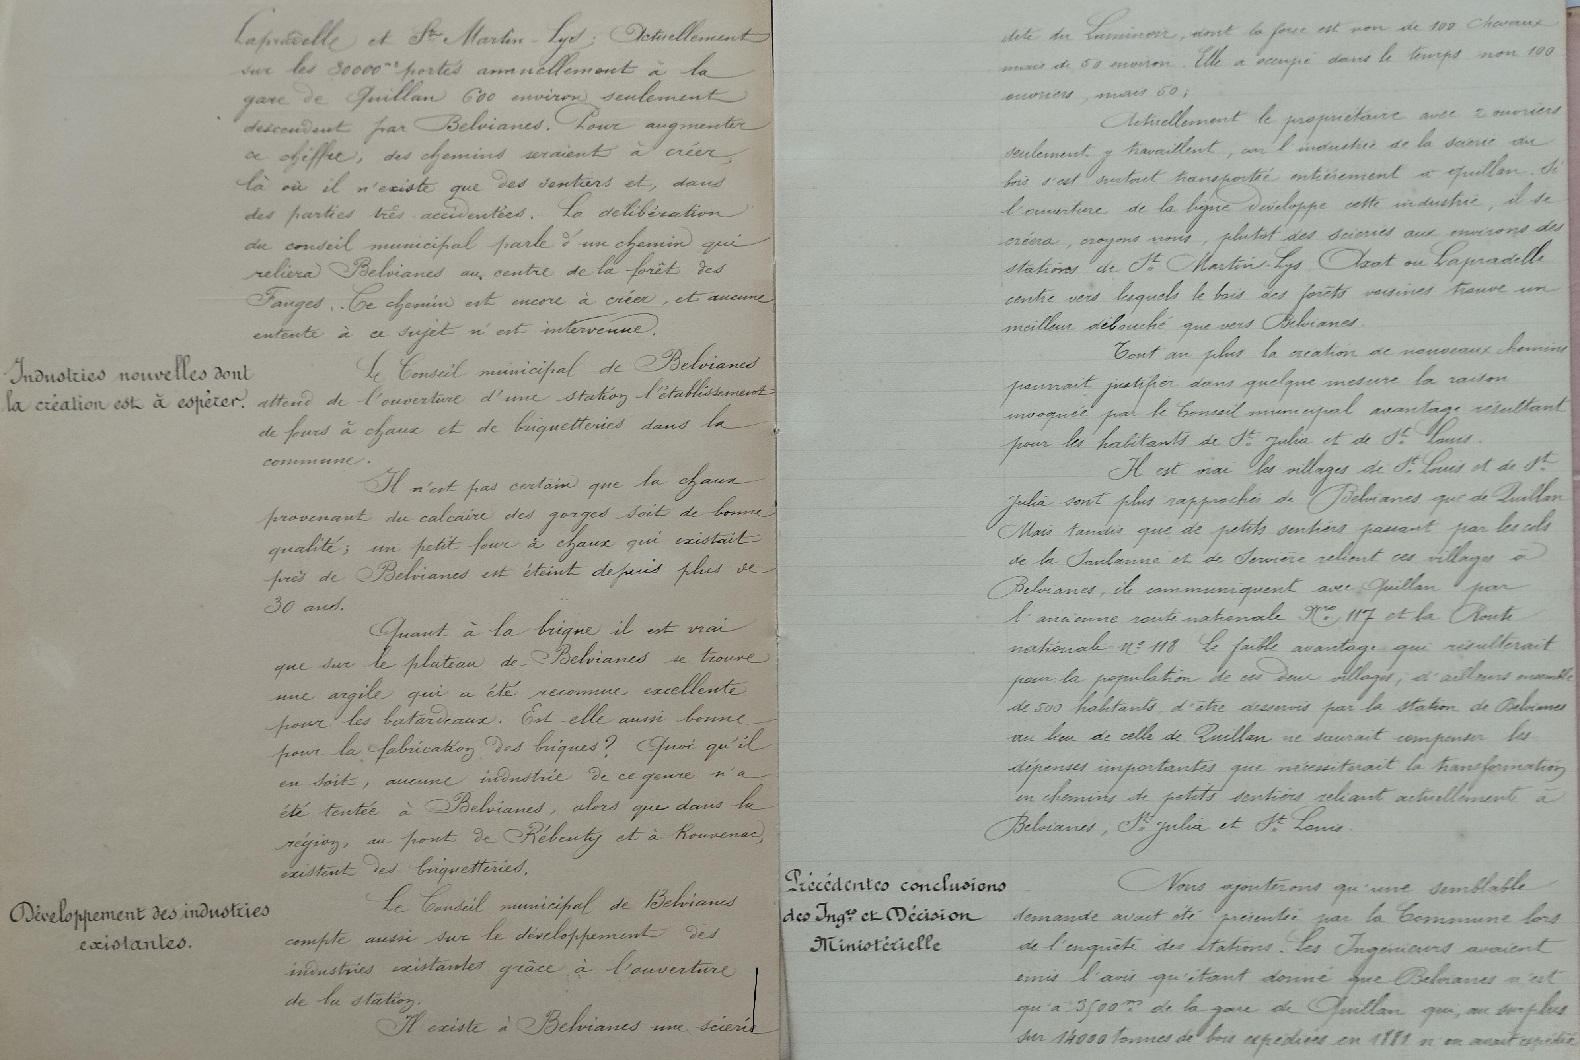 Lapradelle et St Martin-Lys; Actuellement
sur les 30000ms portés annuellement à la
gare de Quillan 600 environ seulement
descendent par Belvianes. Pour augmenter
ce chiffre, des chemins seraient à créer,
là où il n'existe que des sentiers et, dans
des parties très accidentées. La délibération
du conseil municipal parle d'un chemin qui
reliera Belvianes au centre de la forêt des
Fanges. Ce chemin est encore à créer, et aucune
entente à ce sujet n'est intervenue.
Industries nouvelles dont
la création est à espérer.
Le Conseil municipal de Belvianes
attend de l'ouverture d'une station l'établissement
de fours à chaux et de briquetteries dans la
commune.
Il n'est pas certain que la chaux
provenant du calcaire des gorges soit de bonne
qualité; un petit four à chaux qui existait
près de Belvianes est éteint depuis plus de
30 ans.
Quant à la brique il est vrai
que sur le plateau de Belvianes se trouve
une argile qui a été reconnue excellente
pour les batardeaux. Est-elle aussi bonne
pour la fabrication des briques? Quoi qu'il
en soit, aucune industrie de ce genre n'a
été tentée à Belvianes, alors que dans la
région, au pont de Rébenty et à Rouvenac,
existent des briquetteries.
Développement des industries
existantes.
Le Conseil municipal de Belvianes
compte aussi sur le développement des
industries existantes grâce à l'ouverture
de la station.
Il existe à Belvianes une scierie
dite du Laminoir, dont la force est non de 100 chevaux
mais de 50 environ. Elle a occupé dans le temps non 100
ouvriers, mais 60;
Actuellement le propriétaire avec 2 ouvriers
seulement y travaillent, car l'industrie de la scierie du
bois s'est surtout transportée entièrement à Quillan. Si
l'ouverture de la ligne développe cette industrie, il se
créera, croyons nous, plutôt des scieries aux environs des
stations de St Martin-Lys Axat ou Lapradelle
centre vers lesquels le bois des forêts voisines trouve un
meilleur débouché que vers Belvianes.
Tout au plus la création de nouveaux chemins
pourrait justifier dans quelque mesure la raison
invoquée par le Conseil municipal avantage résultant
pour les habitants de St Julia et de St Louis.
Il est vrai les villages de St Louis et de St
Julia sont plus rapprochés de Belvianes que de Quillan
Mais tandis que de petits sentiers passant par les cols
de la et de relient ces villages à
Belvianes, ils communiquent avec Quillan par
l'ancienne route nationale Nro 117 et la Route
nationale no 118 Le faible avantage qui résulterait
pour la population de ces deux villages, d'ailleurs ensemble
de 500 habitants d'être desservis par la station de Belvianes
au lieu de celle de Quillan ne saurait compenser les
dépenses importantes que nécessiterait la transformation
en chemins de petits sentiers reliant actuellement à
Belvianes, St Julia et St Louis.
Précédentes conclusions
des Ingrs et Décision
Ministérielle
Nous ajouterons qu'une semblable
demande avait été présentée par la Commune lors
de l'enquête des stations. Les Ingénieurs avaient
émis l'avis qu'étant donné que Belvianes n'est
qu'à 3500ms de la gare de Quillan qui, au surplus
sur 14000 tonnes de bois expédiées en 1881 n'en avait expédié